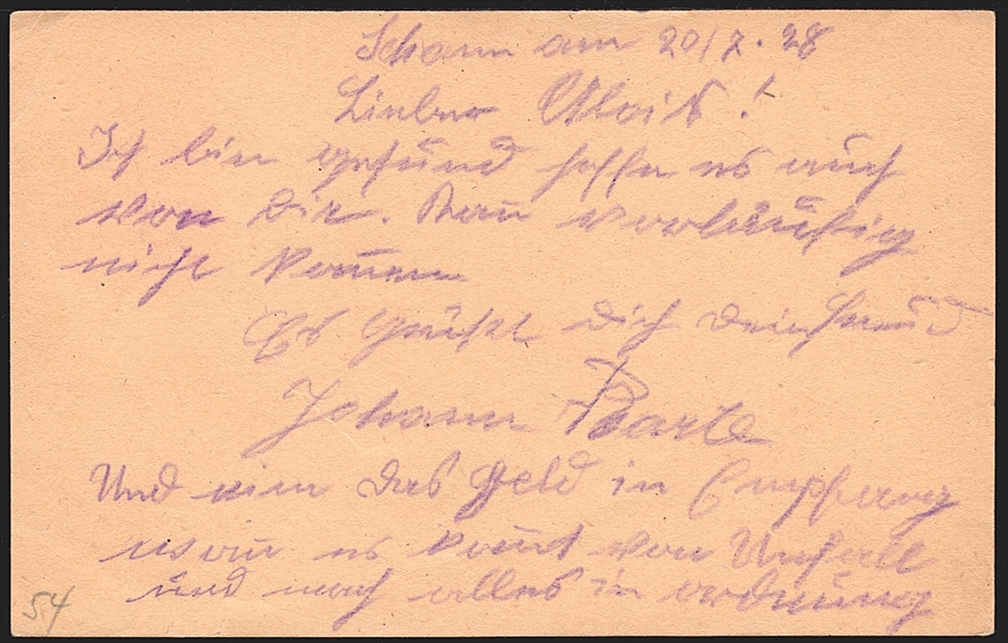 Schaan am 20/7.28
Lieber Alois!
Ich bin gesund hoffe es auch
von Dir. Kan vorläufig
nicht komen
Es Grüßt Dich dein Freund
Johann
Und nim das Geld in Empfang
wan es komt von Unfall
und mach alles in ordnung
54